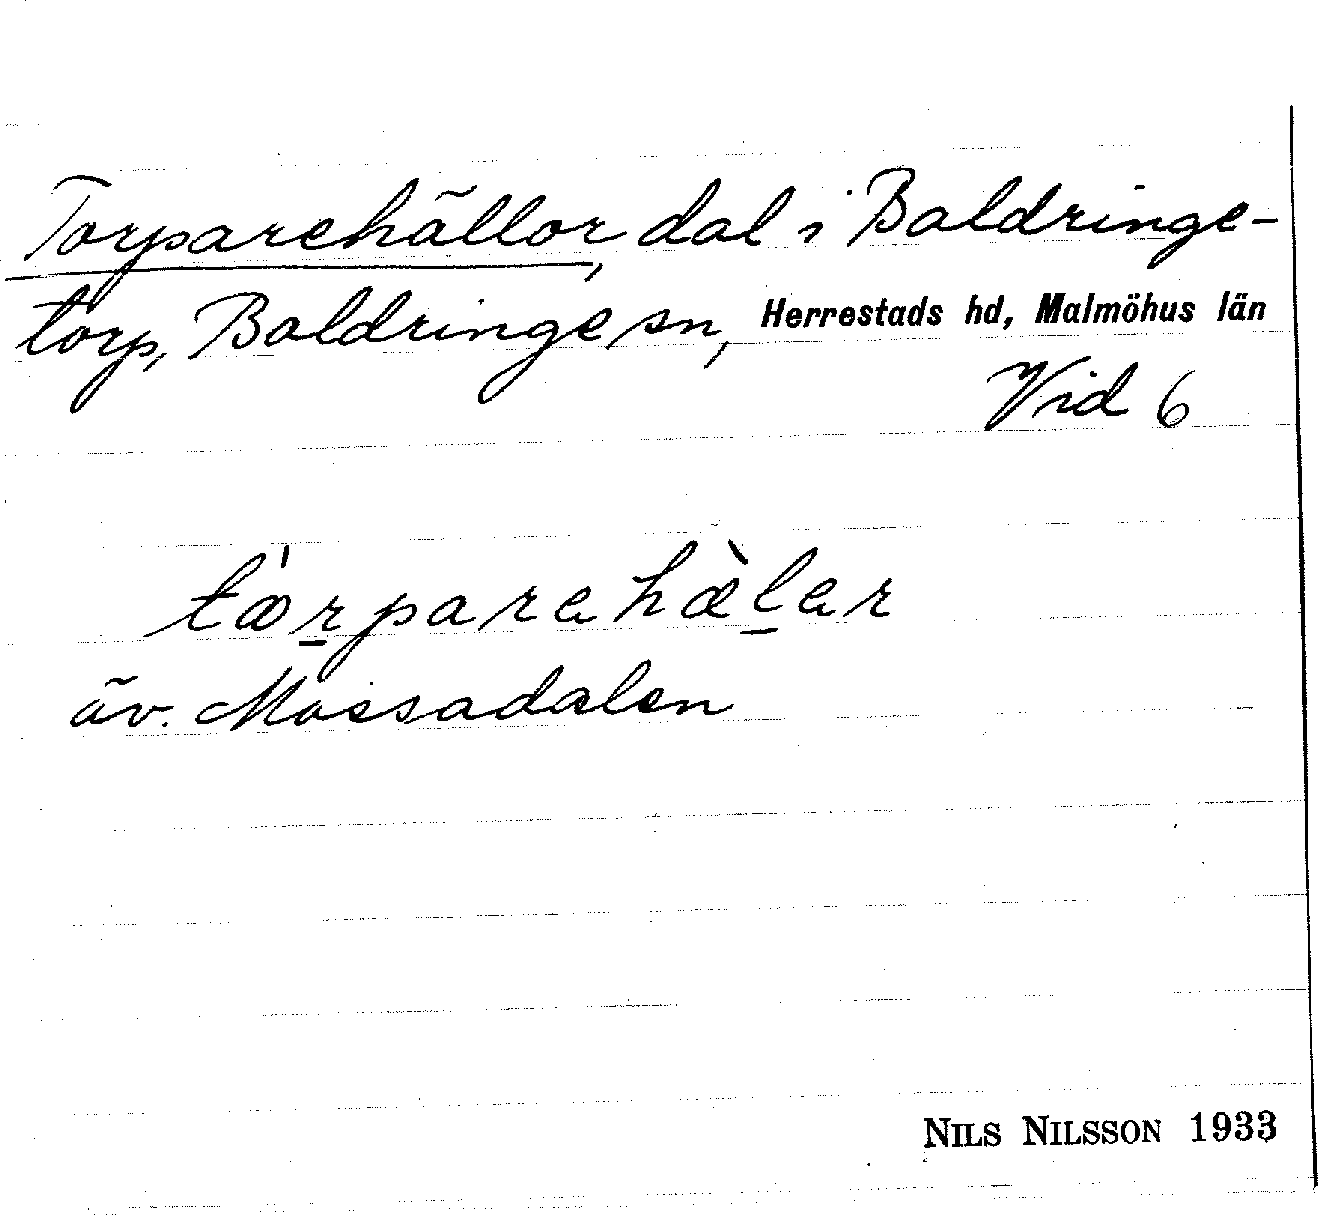 Torparehällor, dal i Baldringe-
torp, Baldringe sn, Herrestads hd, Malmöhus län
Vid 6
äv. Mossadalen
NILS NILSSON 1933